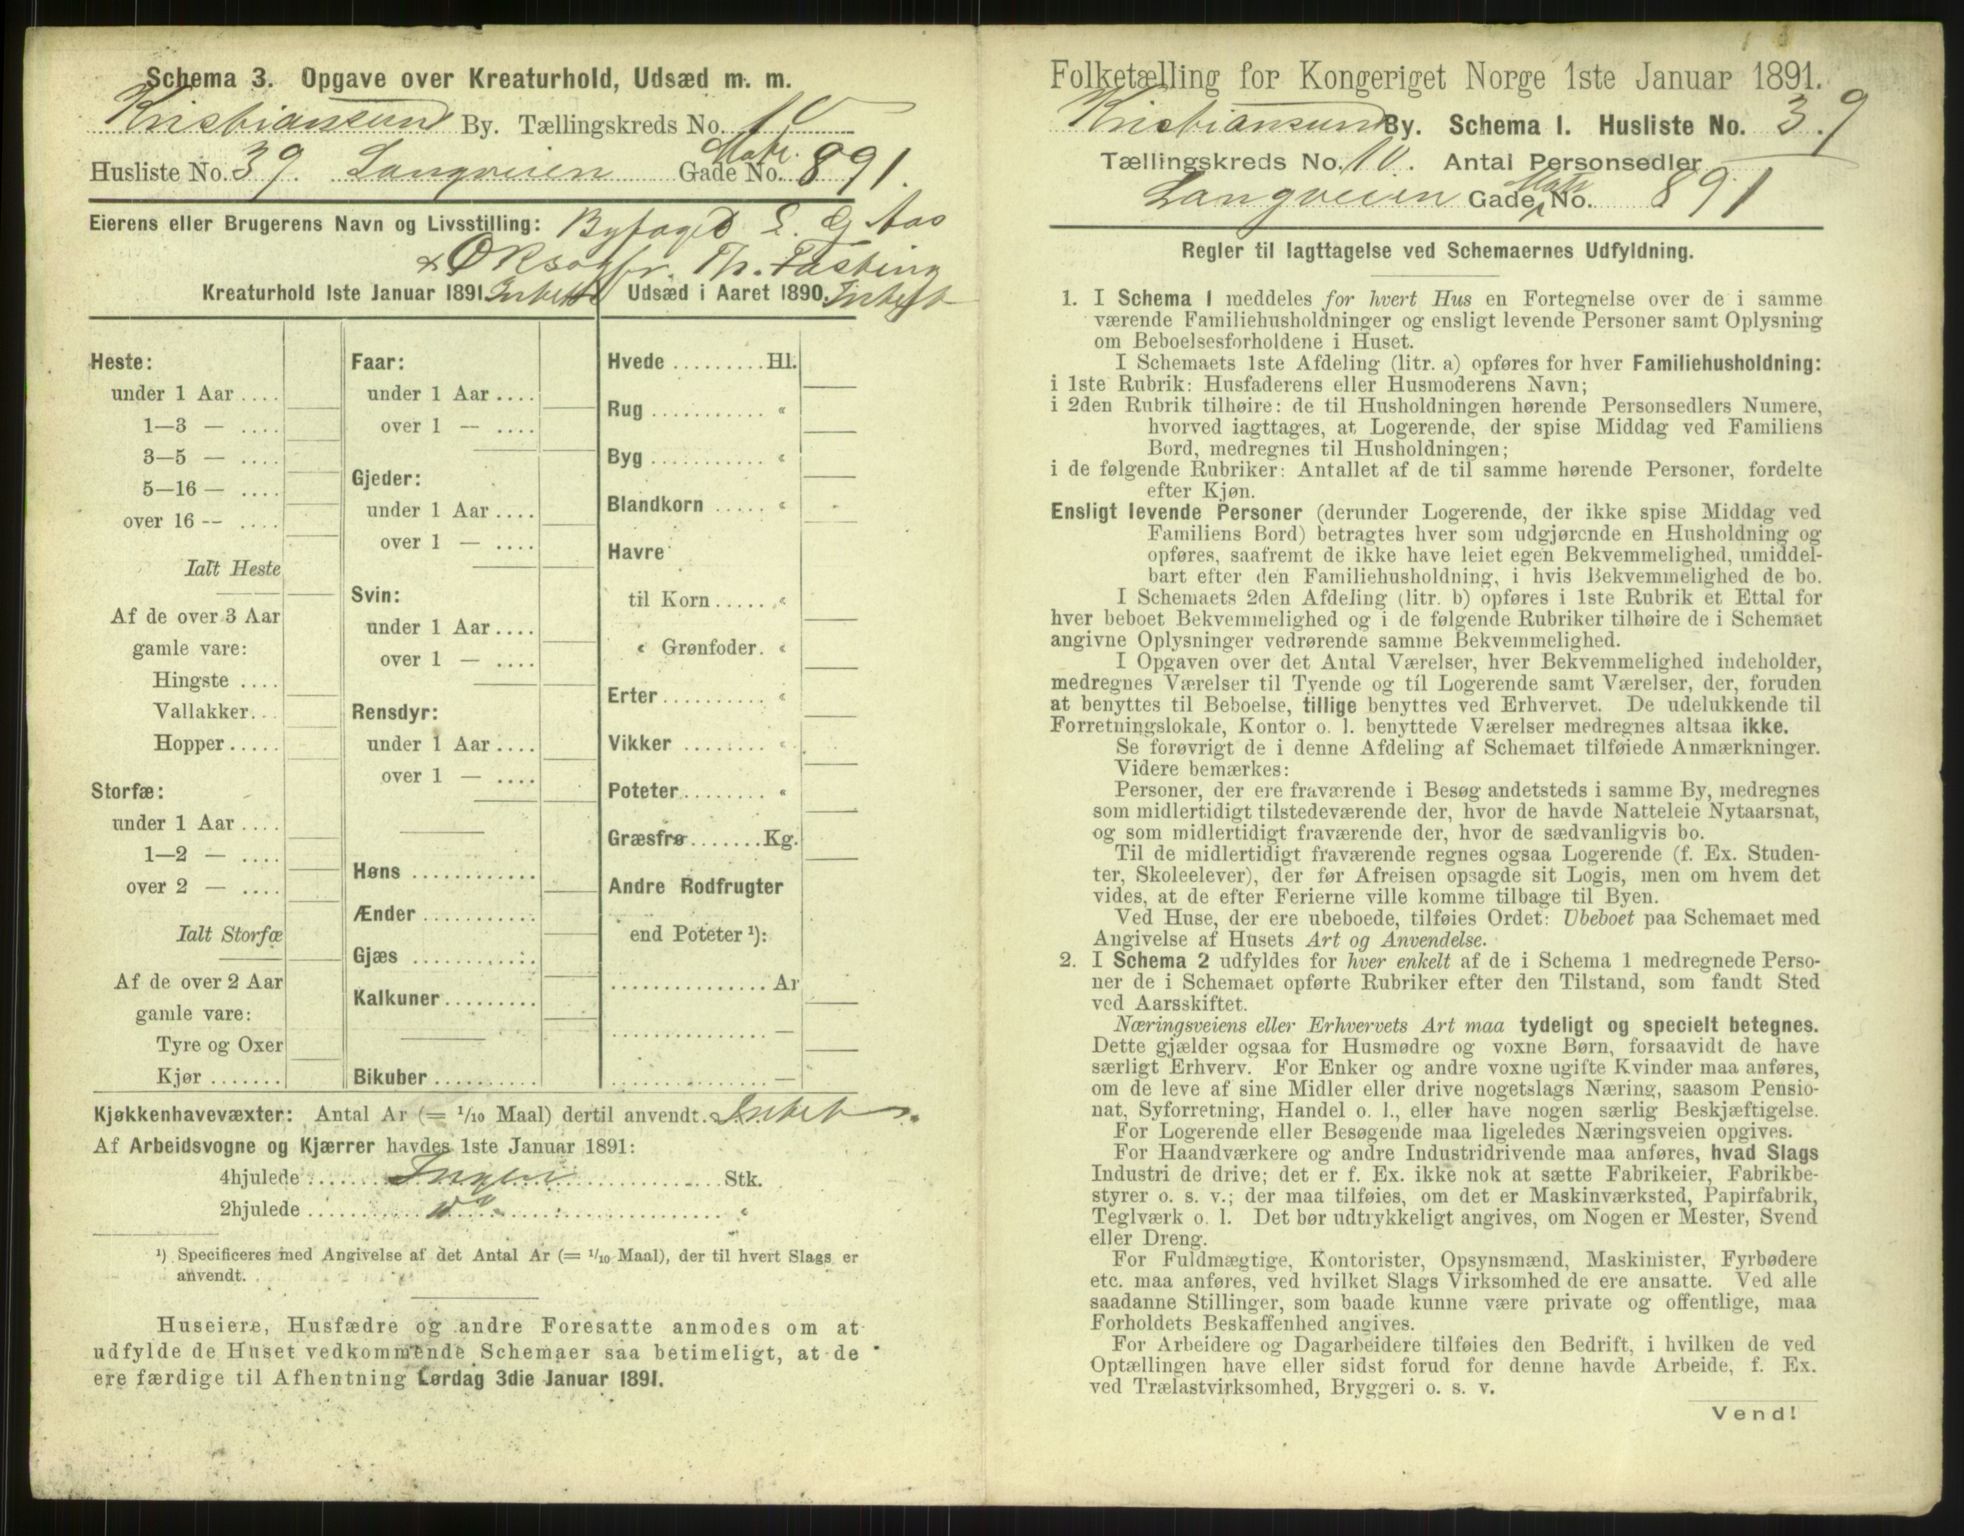 Schema 3. Opgave over Kreaturhold, Udsæd m. m.
Kristiansund By. Tællingskreds No. 10
Husliste No. 39. Langveien Gade Matr. No. 891.
Eierens eller Brugerens Navn og Livsstilling: Byfoged E. G Aas
& Th. Fasting
Kreaturhold 1ste Januar 1891. Intet Udsæd i Aaret 1890. Intet
Heste:
under 1 Aar ....
1—3 — ....
3—5 — ....
5—16 — ....
over 16 -- ....
Ialt Heste
Af de over 3 Aar
gamle vare:
Hingste ....
Vallakker...
Hopper.....
Storfæ:
under 1 Aar ....
1—2 — ....
over 2 — ....
Ialt Storfæ
Af de over 2 Aar
gamle vare:
Tyre og Oxer
Kjør .......
Faar:
under 1 Aar ....
over 1 — ....
Gjeder:
under 1 Aar....
over 1 — ....
Svin:
under 1 Aar....
over 1 — ....
Rensdyr:
under 1 Aar....
over 1 — ....
Høns ............
Ænder ..........
Gjæs ............
Kalkuner.........
Bikuber ..........
Hvede .........Hl.
Rug ........... «
Byg ........... «
Blandkorn ..... «
Havre
til Korn...... «
« Grønfoder. «
Erter .......... «
Vikker ......... «
Poteter........ «
Græsfrø.......Kg.
Andre Rodfrugter
end Poteter ¹):
............... Ar
............... —
............... —
Kjøkkenhavevæxter: Antal Ar (= 1/10 Maal) dertil anvendt. Intet
Af Arbeidsvogne og Kjærrer havdes 1ste Januar 1891:
4hjulede ........ Ingen ................ Stk.
2hjulede ........ do ................ «
¹) Specificeres med Angivelse af det Antal Ar (= 1/10 Maal), der til hvert Slags er
anvendt.
Huseiere, Husfædre og andre Foresatte anmodes om at
udfylde de Huset vedkommende Schemaer saa betimeligt, at de
ere færdige til Afhentning Lørdag 3die Januar 1891.
Folketælling for Kongeriget Norge 1ste Januar 1891.
Kristiansund By. Schema 1. Husliste No. 39
Tællingskreds No. 10. Antal Personsedler
Langveien Gade Matr No. 891
Regler til Iagttagelse ved Schemaernes Udfyldning.
1. I Schema 1 meddeles for hvert Hus en Fortegnelse over de i samme
værende Familiehusholdninger og ensligt levende Personer samt Oplysning
om Beboelsesforholdene i Huset.
I Schemaets 1ste Afdeling (litr. a) opføres for hver Familiehusholdning:
i 1ste Rubrik: Husfaderens eller Husmoderens Navn;
i 2den Rubrik tilhøire: de til Husholdningen hørende Personsedlers Numere,
hvorved iagttages, at Logerende, der spise Middag ved Familiens
Bord, medregnes til Husholdningen;
i de følgende Rubriker: Antallet af de til samme hørende Personer, fordelte
efter Kjøn.
Ensligt levende Personer (derunder Logerende, der ikke spise Middag ved
Familiens Bord) betragtes hver som udgjørende en Husholdning og
opføres, saafremt de ikke have leiet egen Bekvemmelighed, umiddel-
bart efter den Familiehusholdning, i hvis Bekvemmelighed de bo.
I Schemaets 2den Afdeling (litr. b) opføres i 1ste Rubrik et Ettal for
hver beboet Bekvemmelighed og i de følgende Rubriker tilhøire de i Schemaet
angivne Oplysninger vedrørende samme Bekvemmelighed.
I Opgaven over det Antal Værelser, hver Bekvemmelighed indeholder,
medregnes Værelser til Tyende og til Logerende samt Værelser, der, foruden
at benyttes til Beboelse, tillige benyttes ved Erhvervet. De udelukkende til
Forretningslokale, Kontor o. l. benyttede Værelser medregnes altsaa ikke.
Se forøvrigt de i denne Afdeling af Schemaet tilføiede Anmærkninger.
Videre bemærkes:
Personer, der ere fraværende i Besøg andetsteds i samme By, medregnes
som midlertidigt tilstedeværende der, hvor de havde Natteleie Nytaarsnat,
og som midlertidigt fraværende der, hvor de sædvanligvis bo.
Til de midlertidigt fraværende regnes ogsaa Logerende (f. Ex. Studen-
ter, Skoleelever), der før Afreisen opsagde sit Logis, men om hvem det
vides, at de efter Ferierne ville komme tilbage til Byen.
Ved Huse, der ere ubeboede, tilføies Ordet: Ubeboet paa Schemaet med
Angivelse af Husets Art og Anvendelse.
2. I Schema 2 udfyldes for hver enkelt af de i Schema 1 medregnede Perso-
ner de i Schemaet opførte Rubriker efter den Tilstand, som fandt Sted
ved Aarsskiftet.
Næringsveiens eller Erhvervets Art maa tydeligt og specielt betegnes.
Dette gjælder ogsaa for Husmødre og voxne Børn, forsaavidt de have
særligt Erhverv. For Enker og andre voxne ugifte Kvinder maa anføres,
om de leve af sine Midler eller drive nogetslags Næring, saasom Pensio-
nat, Syforretning, Handel o. l., eller have nogen særlig Beskjæftigelse.
For Logerende eller Besøgende maa ligeledes Næringsveien opgives.
For Haandværkere og andre Industridrivende maa anføres, hvad Slags
Industri de drive; det er f. Ex. ikke nok at sætte Fabrikeier, Fabrikbe-
styrer o. s. v.; der maa tilføies, om det er Maskinværksted, Papirfabrik,
Teglværk o. l. Det bør udtrykkeligt angives, om Nogen er Mester, Svend
eller Dreng.
For Fuldmægtige, Kontorister, Opsynsmænd, Maskinister, Fyrbødere
etc. maa anføres, ved hvilket Slags Virksomhed de ere ansatte. Ved alle
saadanne Stillinger, som baade kunne være private og offentlige, maa
Forholdets Beskaffenhed angives.
For Arbeidere og Dagarbeidere tilføies den Bedrift, i hvilken de ved
Optællingen have eller sidst forud for denne havde Arbeide, f. Ex.
ved Trælastvirksomhed, Bryggeri o. s. v.
Vend!